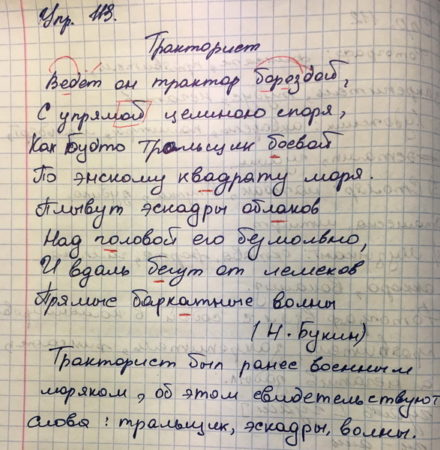 Упр. 113.
Тракторист
Ведет он трактор бороздой,
С упрямой целиною споря,
Как будто тральщик боевой
По энскому квадрату моря.
Плывут эскадры облаков
Над головой его безмолвно,
И вдаль бегут от лемехов
Прямые бархатные волны
(Н. Букин)
Тракторист был ранее военным
моряком, об этом свидетельствуют
слова: тральщик, эскадры, волны.